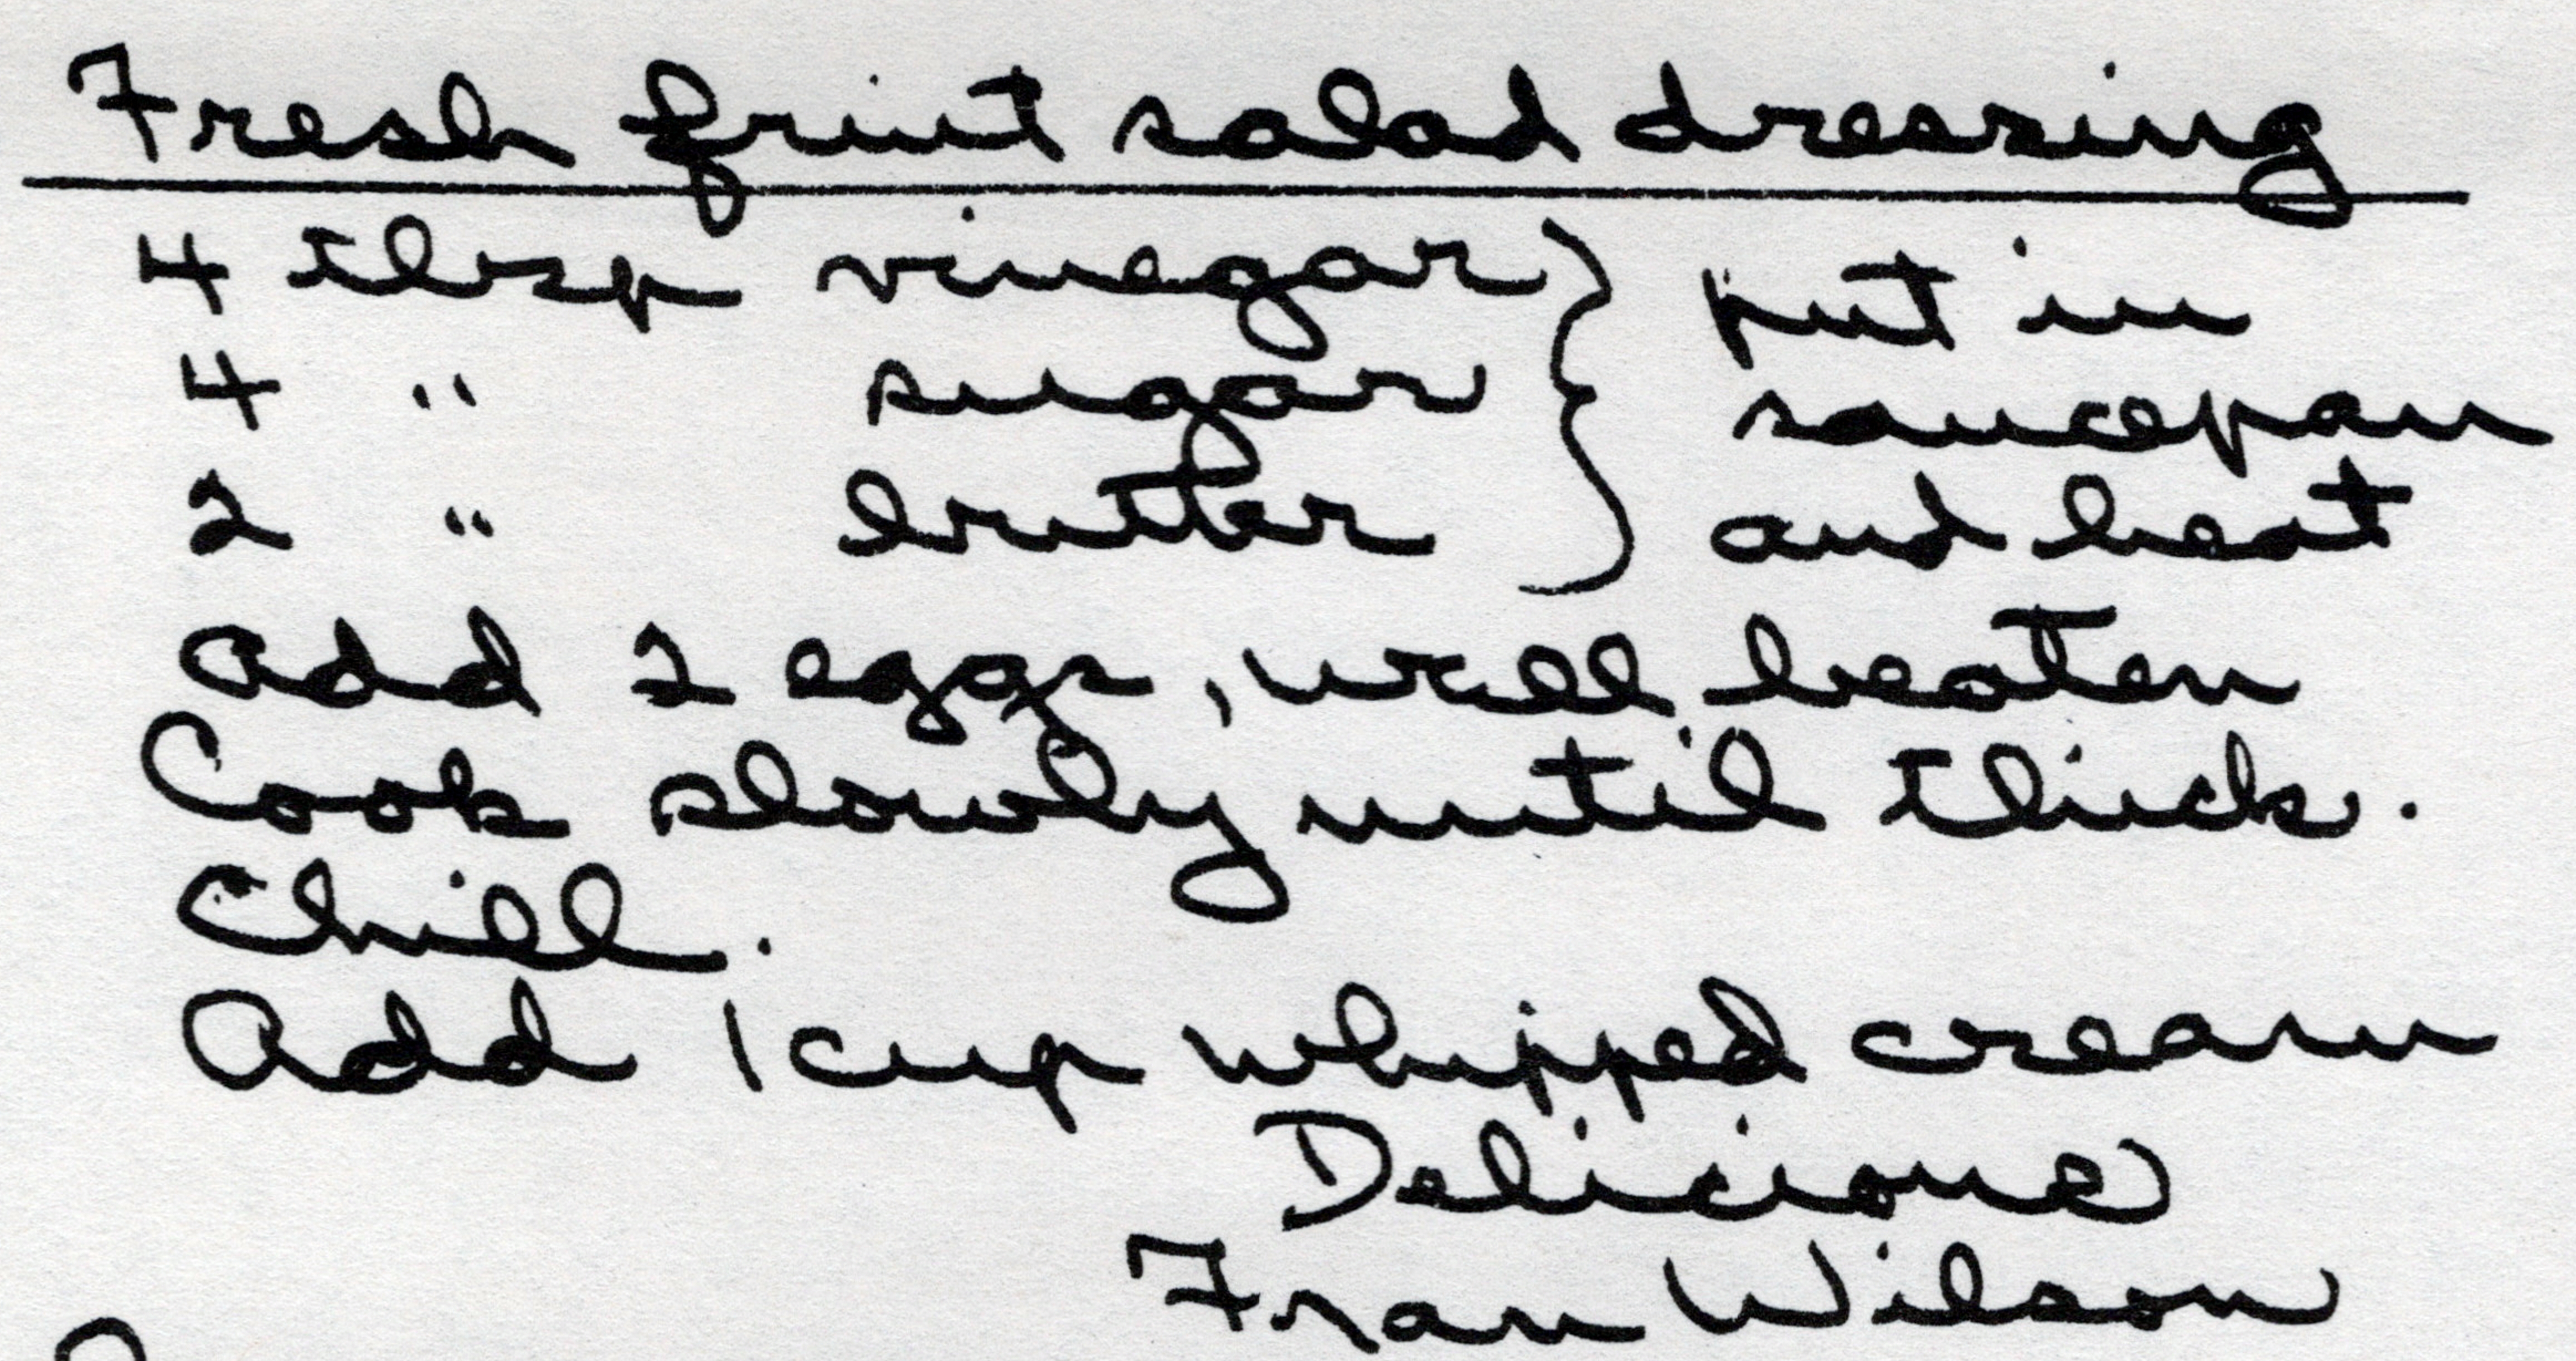 Fresh fruit salad dressing
4 tbsp vinegar } put in
4 " sugar saucepan
2 " butter and heat
add 2 eggs, well beaten
Cook slowly until thick.
Chill.
Add 1 cup whipped cream
Delicious
Fran Wilson